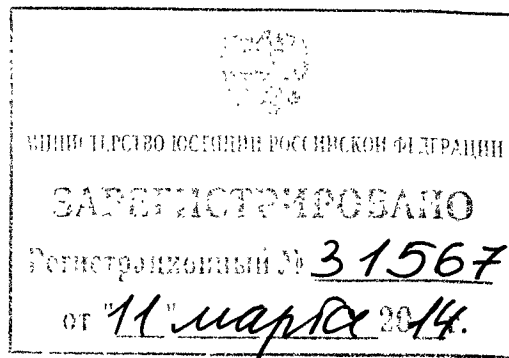 МИНИСТЕРСТВО ЮСТИЦИИ РОССИЙСКОЙ ФЕДЕРАЦИИ
ЗАРЕГИСТРИРОВАНО
Регистрационный № 31567
от "11" марта 2014.